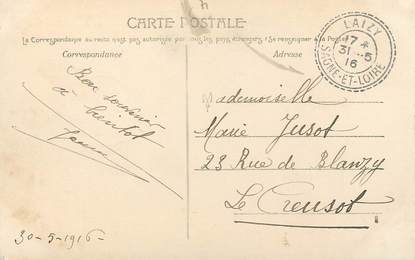 CARTE POSTALE
La Correspondance au recto n'est pas autorisée par tous les pays étrangers (Se renseigner à la Poste)
Correspondance
Adresse
LAIZY
17 *
31 - 5
16
SAONE-ET-LOIRE
Bon souvenir
à bientôt
Mademoiselle
Marie Jusot
23 Rue de Blanzy
Le Creusot
30-5-1916-